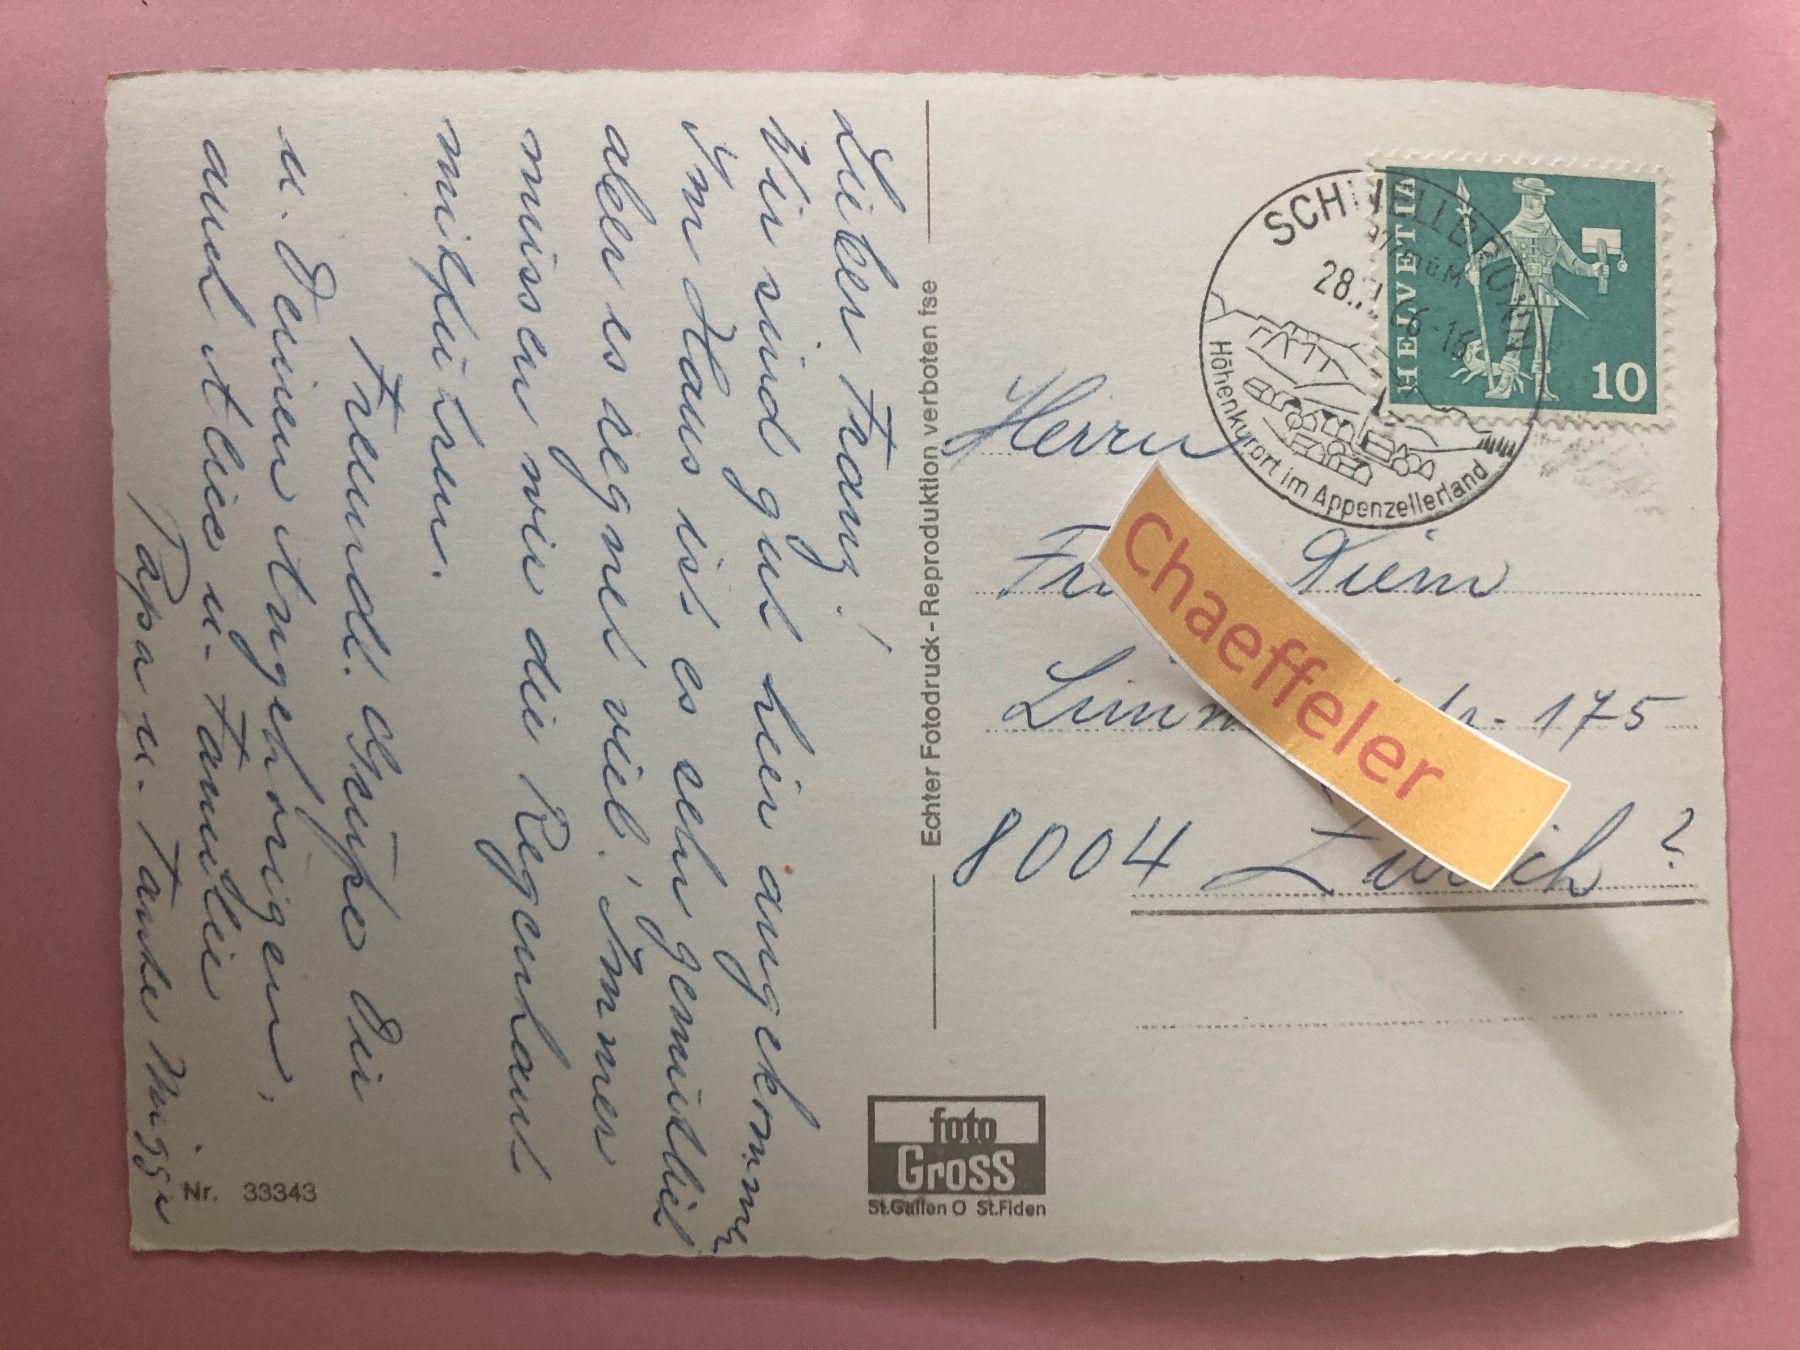 Lieber Franz!
Wir sind gut hier angekommen
Im Haus ist es sehr gemütlich
aber es regnet viel! Immer
müssen wir die Regenhaut
mitführen.
Freundl. Grüße Dir
u. Deinen Angehörigen,
auch Alice u. Familie
Papa u. Tante
Nr. 33343
Echter Fotodruck - Reproduktion verboten fse
foto
Gross
St.Gallen O St.Fiden
HELVETIA
10
SCHWELLBRUNN
28.
Höhenkurort im Appenzellerland
Herrn
Diem
175
8004 Zürich 2.
Chaeffeler